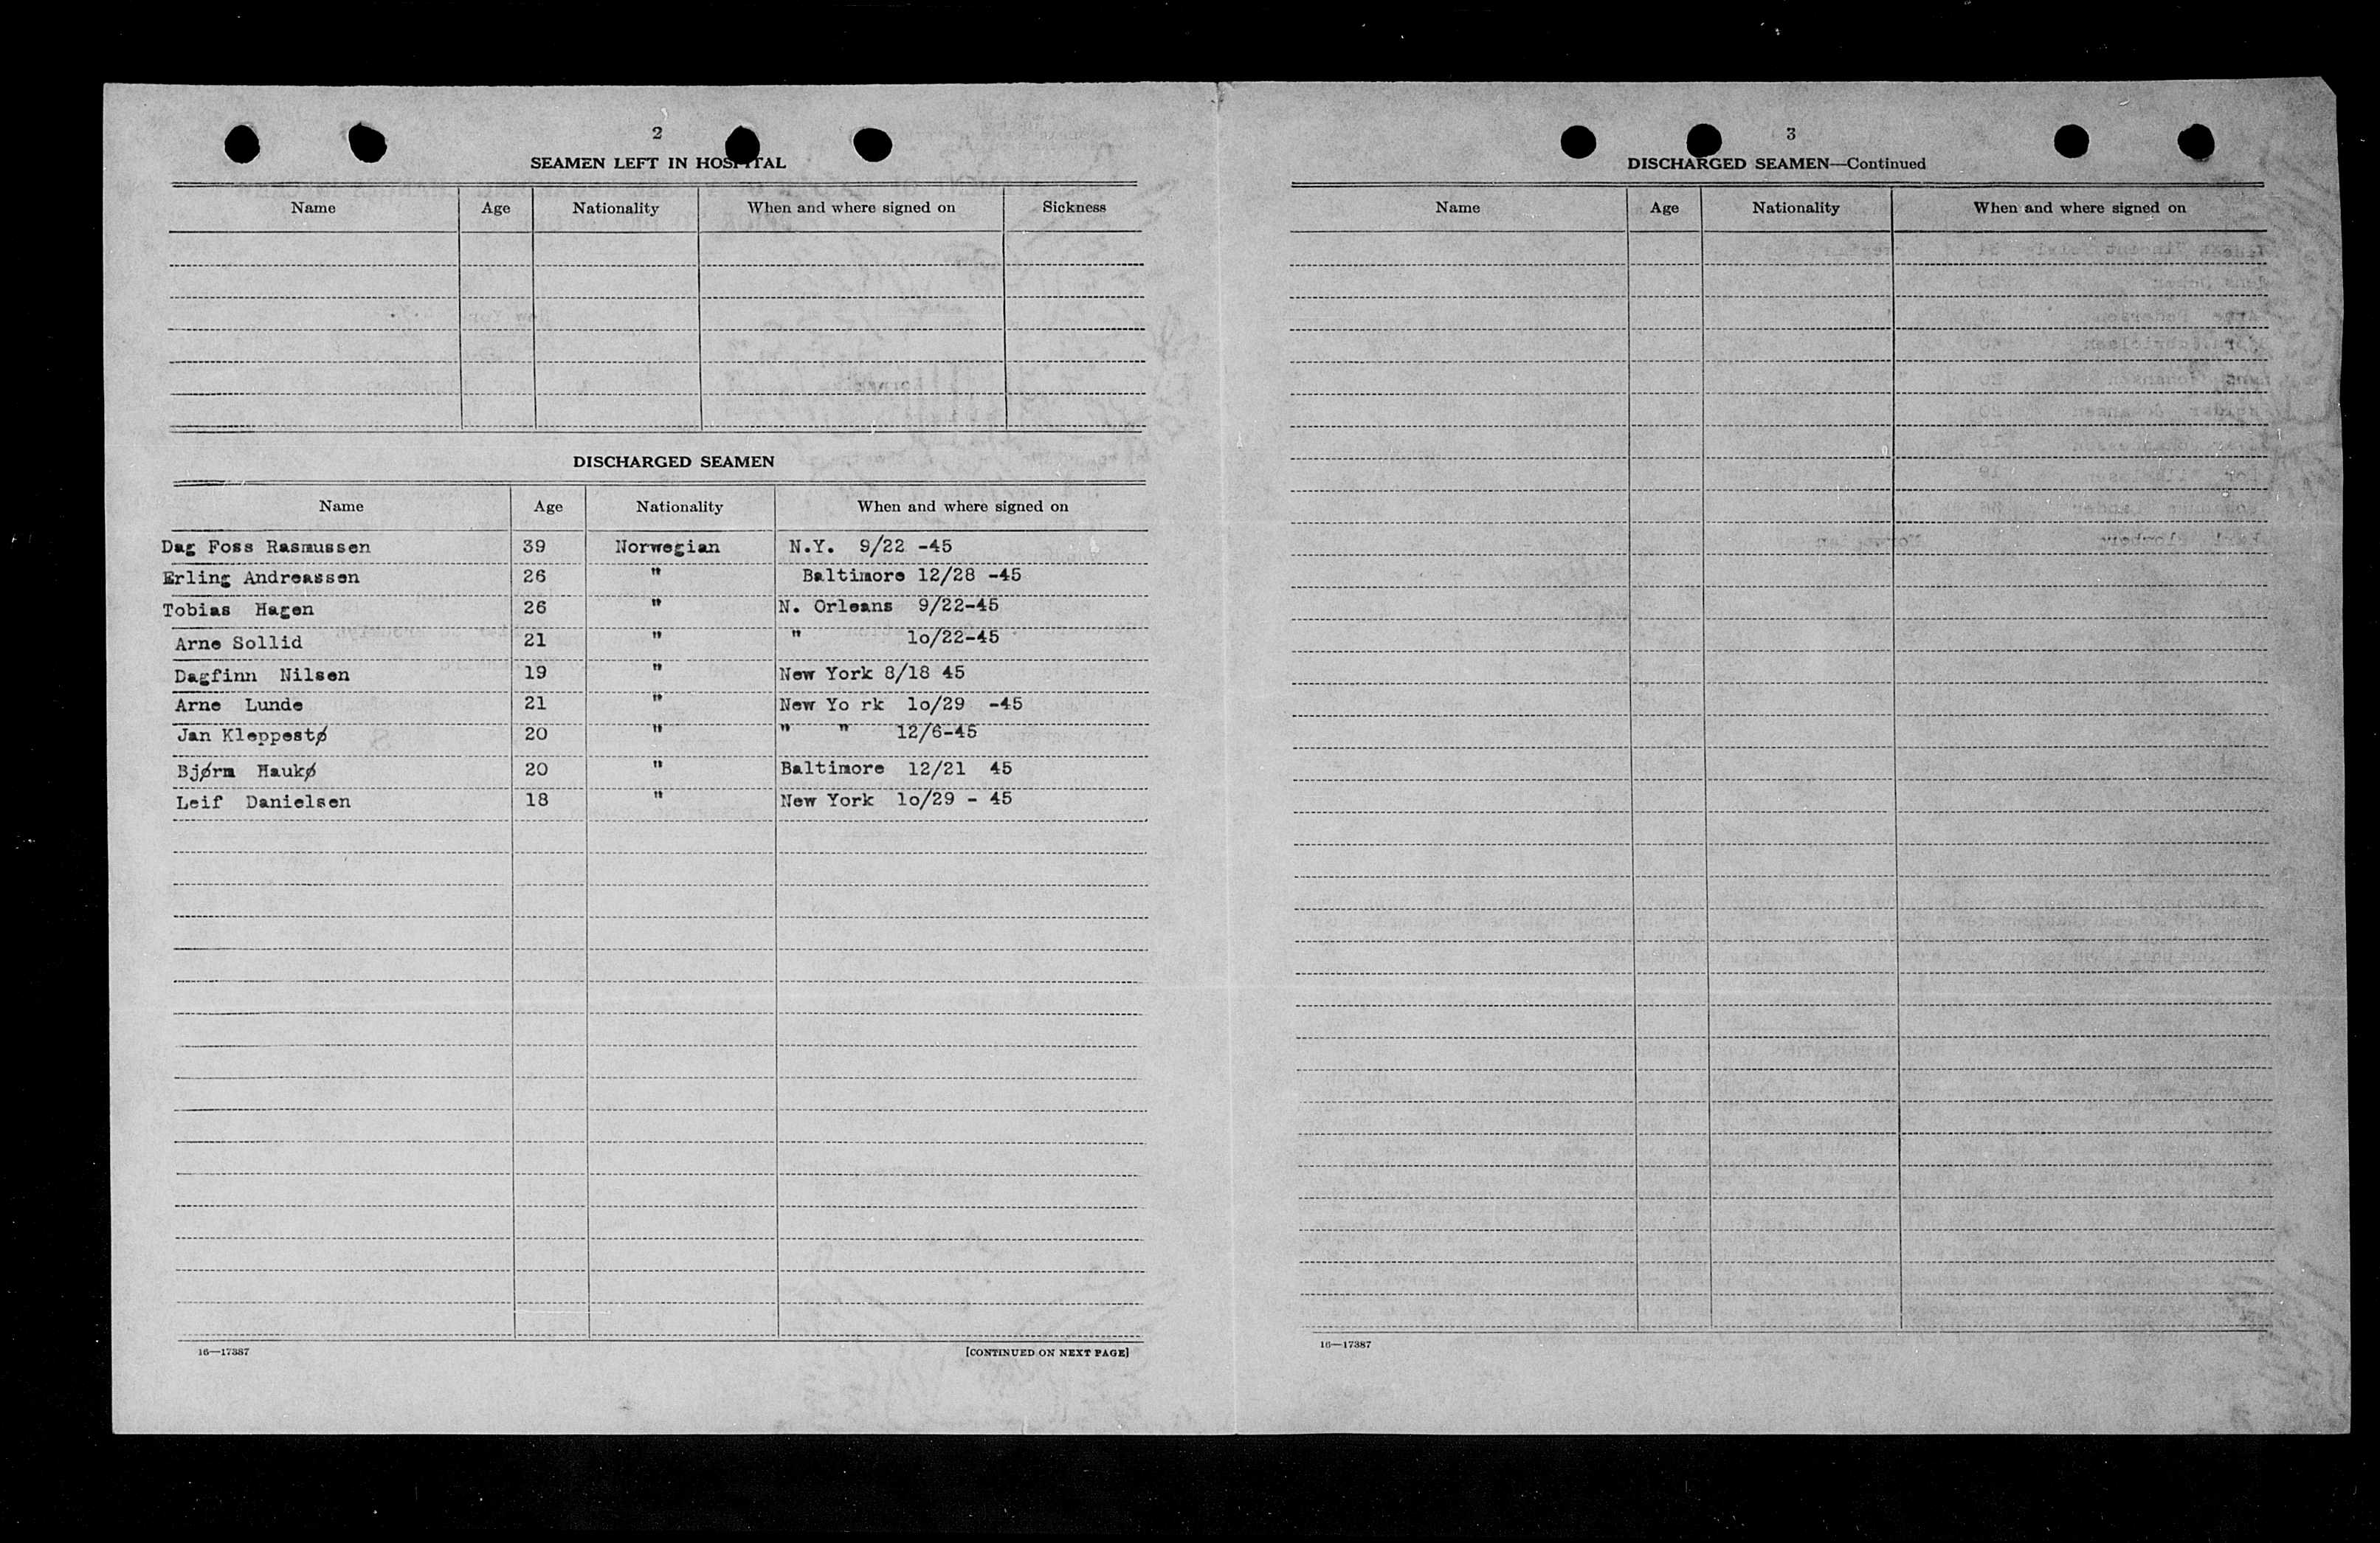 2
SEAMEN LEFT IN HOSPITAL
Name Age Nationality When and where signed on Sickness
DISCHARGED SEAMEN
Name Age Nationality When and where signed on
Dag Foss Rasmussen 39 Norwegian N.Y. 9/22 -45
Erling Andreassen 26 " Baltimore 12/28 -45
Tobias Hagen 26 " N. Orleans 9/22-45
Arne Sollid 21 " " lo/22-45
Dagfinn Nilsen 19 " New York 8/18 45
Arne Lunde 21 " New Yo rk lo/29 -45
Jan Kleppestø 20 " " " 12/6-45
Bjørn Haukø 20 " Baltimore 12/21 45
Leif Danielsen 18 " New York lo/29 - 45
16—17387 [CONTINUED ON NEXT PAGE]
3
DISCHARGED SEAMEN—Continued
Name Age Nationality When and where signed on
16—17387